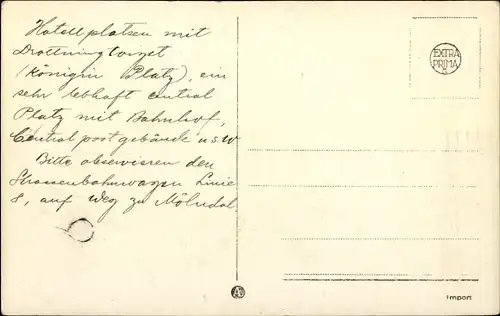 Hotellplatsen mit
Drottningtorget
(Königin Platz), ein
sehr lebhaft central
Platz mit Bahnhof,
Central postgebäude u.s.w
Bitte observieren den
Strassenbahnwagen Linie
8, auf Weg zu Mölndal
EXTRA
PRIMA
A
Import